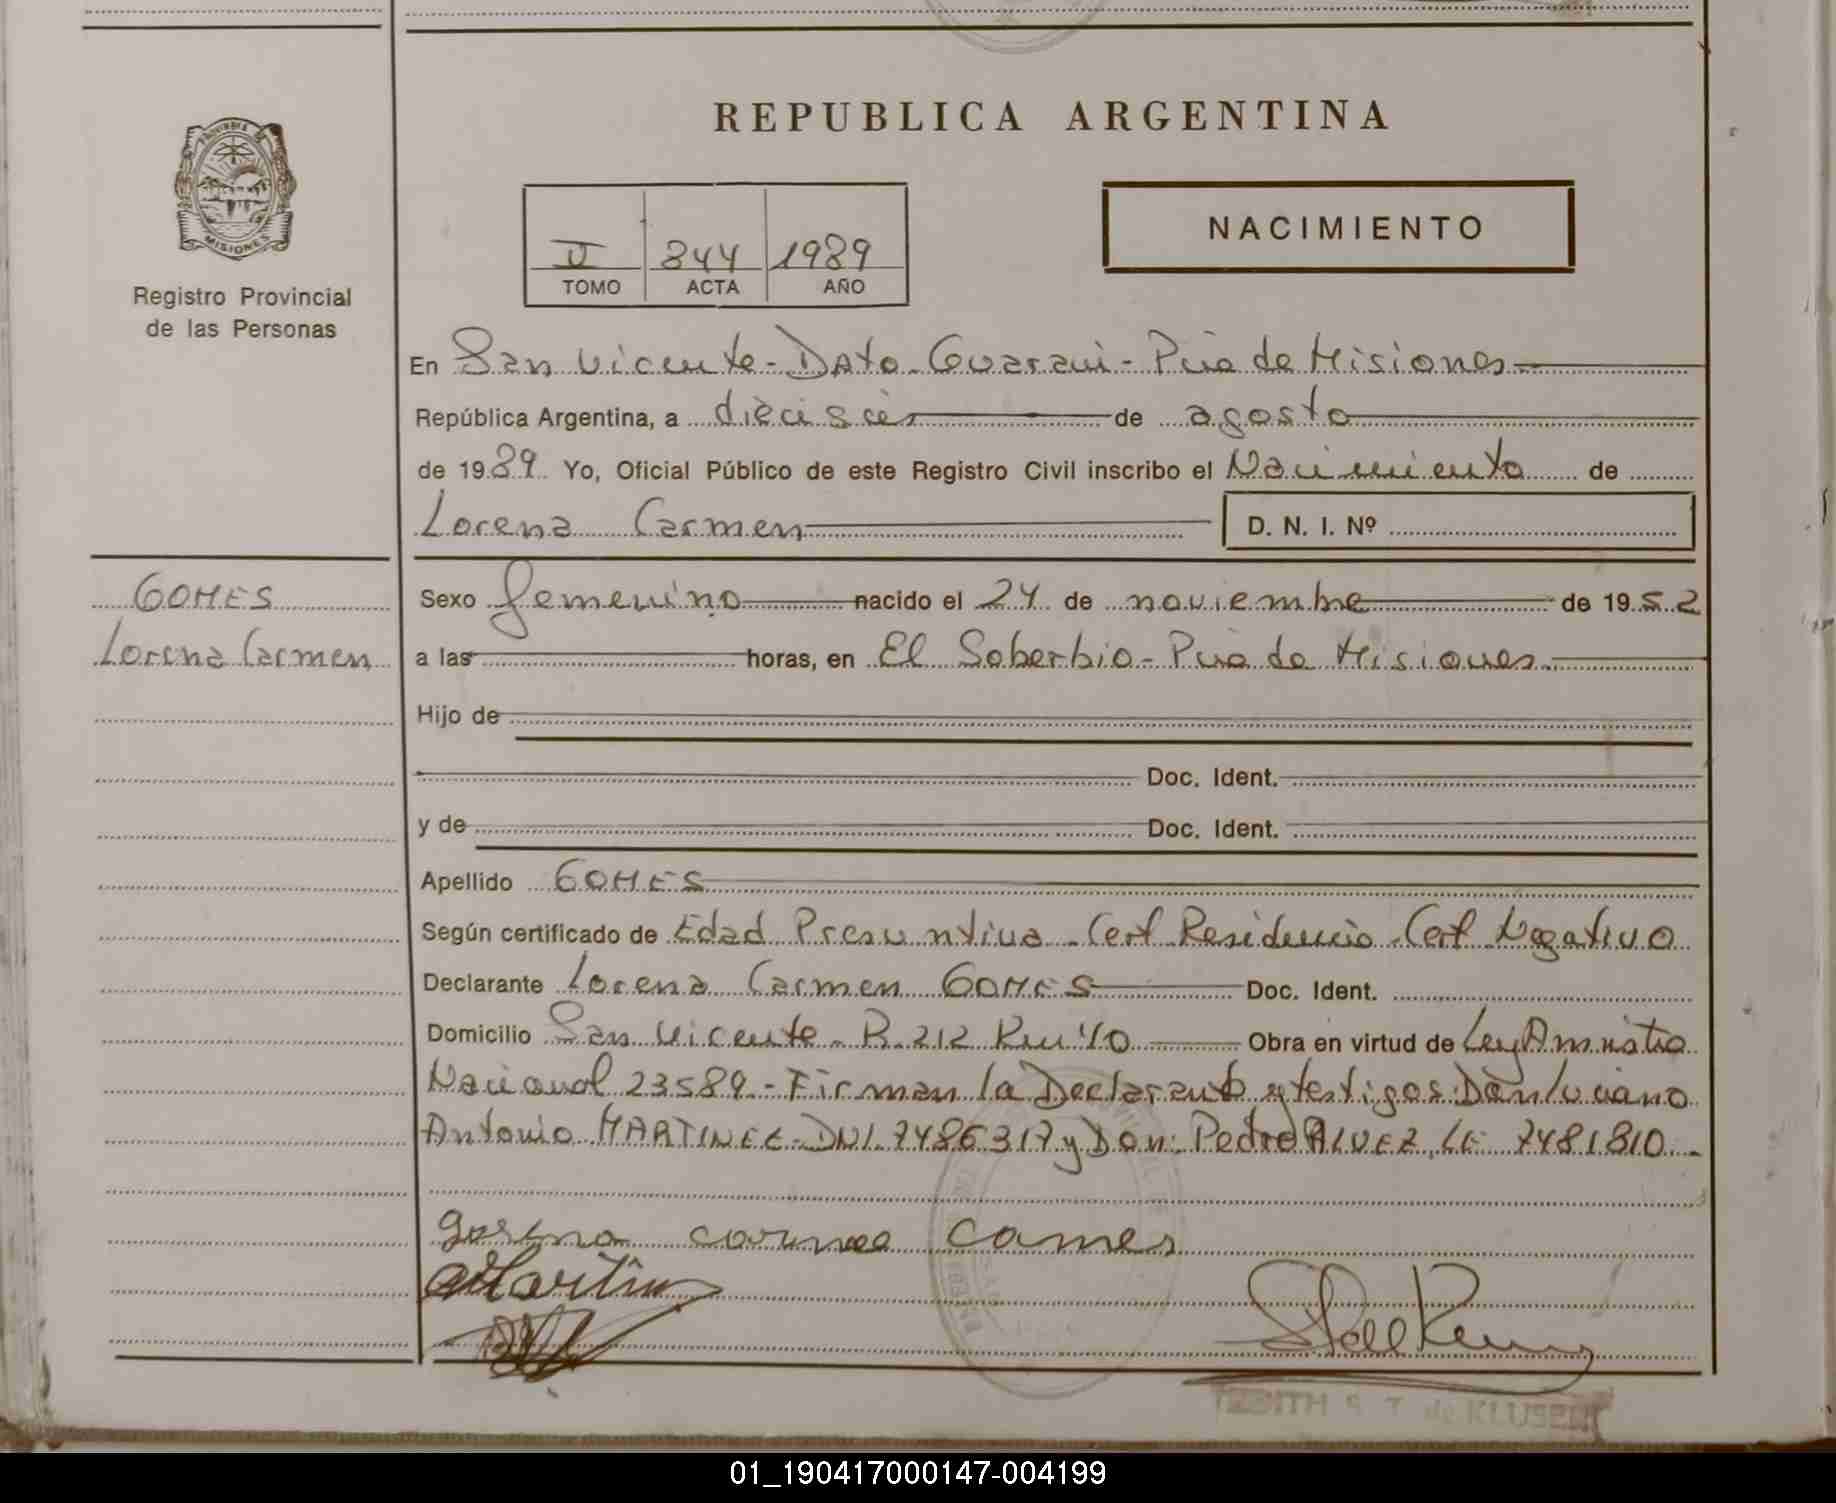 REPUBLICA ARGENTINA
PROVINCIA DE
MISIONES
Registro Provincial
de las Personas
II 844 1989
TOMO ACTA AÑO
NACIMIENTO
En San Vicente - Dpto. Guarani - Pcia de Misiones
República Argentina, a dieciseis de agosto
de 1989 Yo, Oficial Público de este Registro Civil inscribo el Nacimiento de
Lorena Carmen D. N. I. Nº
GOMES
Lorena Carmen
Sexo femenino nacido el 24 de noviembre de 1952
a las horas, en El Soberbio - Pcia de Misiones
Hijo de
Doc. Ident.
y de Doc. Ident.
Apellido GOMES
Según certificado de Edad Presuntiva - Cert Residencia - Cert Negativo
Declarante Lorena Carmen GOMES Doc. Ident.
Domicilio San Vicente - R. 212 Km 40 Obra en virtud de Ley Amnistia
Nacional 23589 - Firman la Declarante y testigos: Don Luciano
Antonio MARTINEZ - DNI. 7486317 y Don: Pedro ALVEZ, LE 7481810. -
gorena carmee Cames
de KLUSEN
01_190417000147-004199